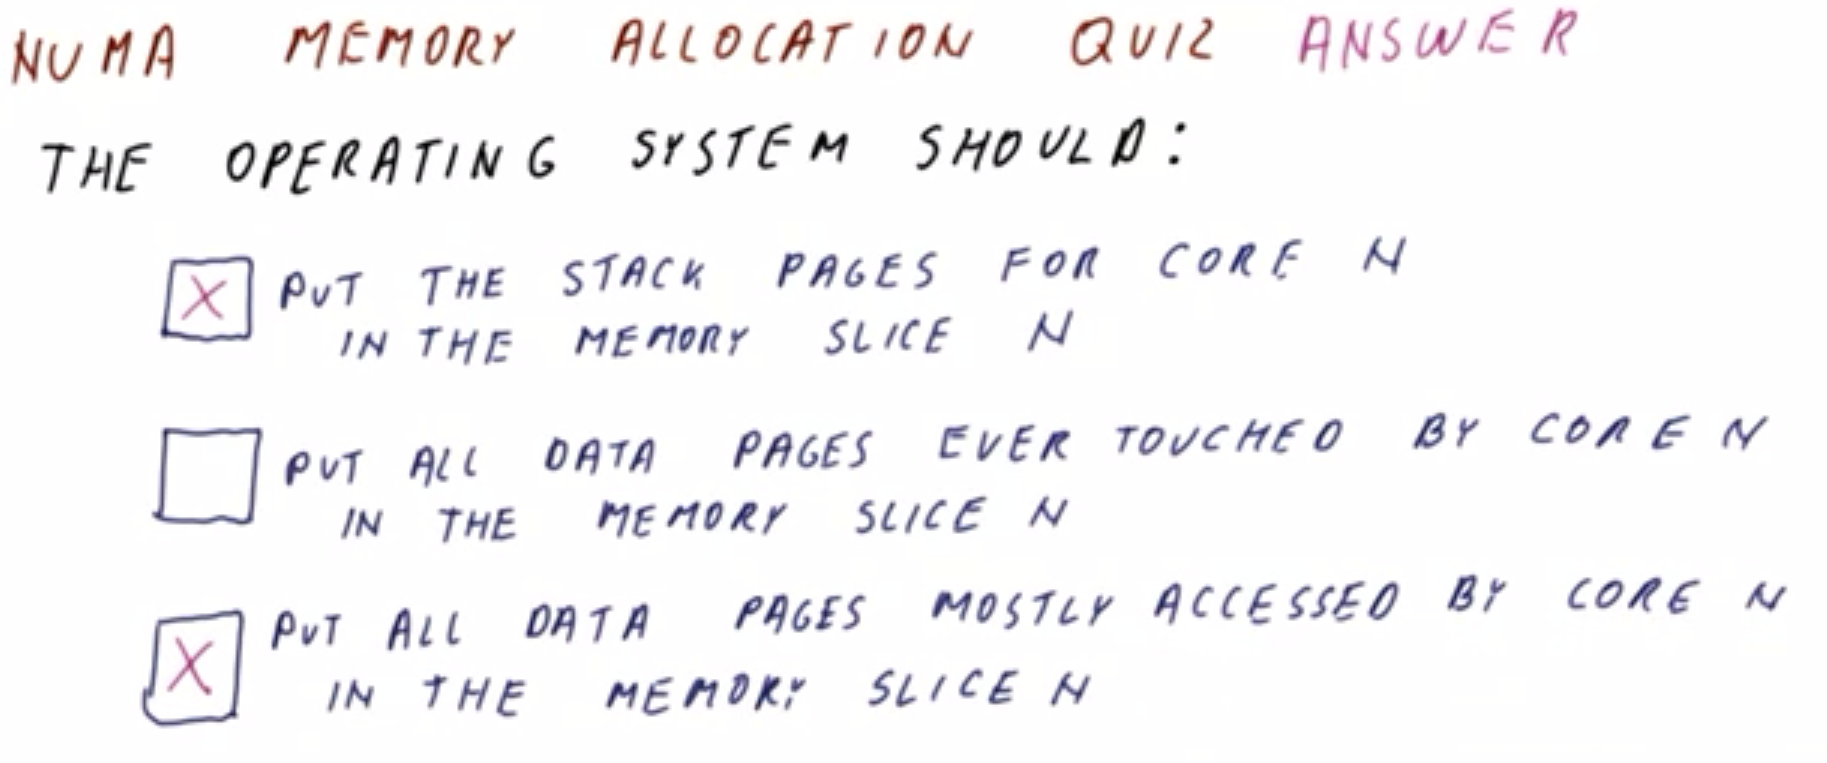 NUMA MEMORY ALLOCATION QUIZ ANSWER
THE OPERATING SYSTEM SHOULD:
X PUT THE STACK PAGES FOR CORE N
IN THE MEMORY SLICE N
PUT ALL DATA PAGES EVER TOUCHED BY CORE N
IN THE MEMORY SLICE N
X PUT ALL DATA PAGES MOSTLY ACCESSED BY CORE N
IN THE MEMORY SLICE N